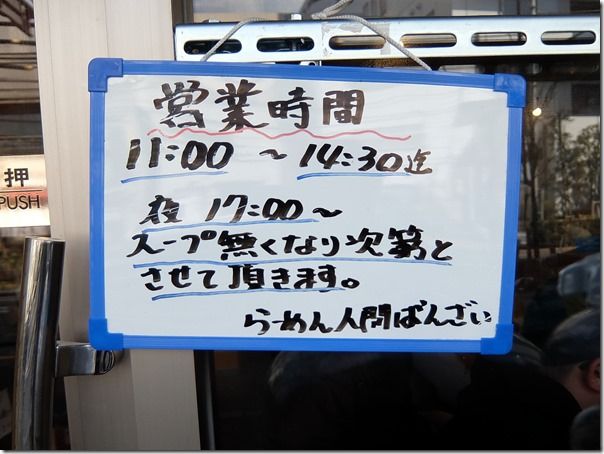 営業時間
11:00 ~ 14:30迄
夜 17:00~
スープ無くなり次第と
させて頂きます。
らーめん人間ばんざい
押
PUSH